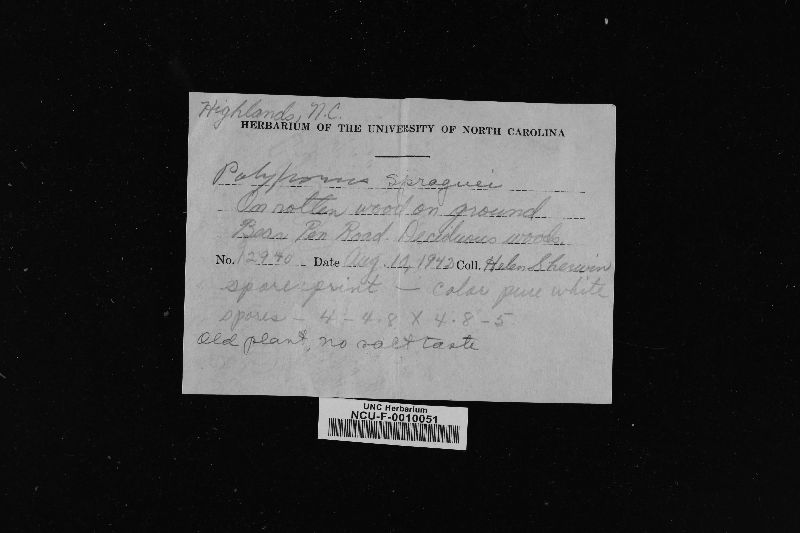 Highlands, N.C.
HERBARIUM OF THE UNIVERSITY OF NORTH CAROLINA
Polyporus spraguei
On rotten wood on ground
Bear Pen Road. Deciduous woods.
No. 12940 Date Aug. 10, 1942 Coll. Helen Sherwin
spore print — color pure white
spores - 4 - 4.8 X 4.8 - 5
Old plant, no salt taste
UNC Herbarium
NCU-F-0010051